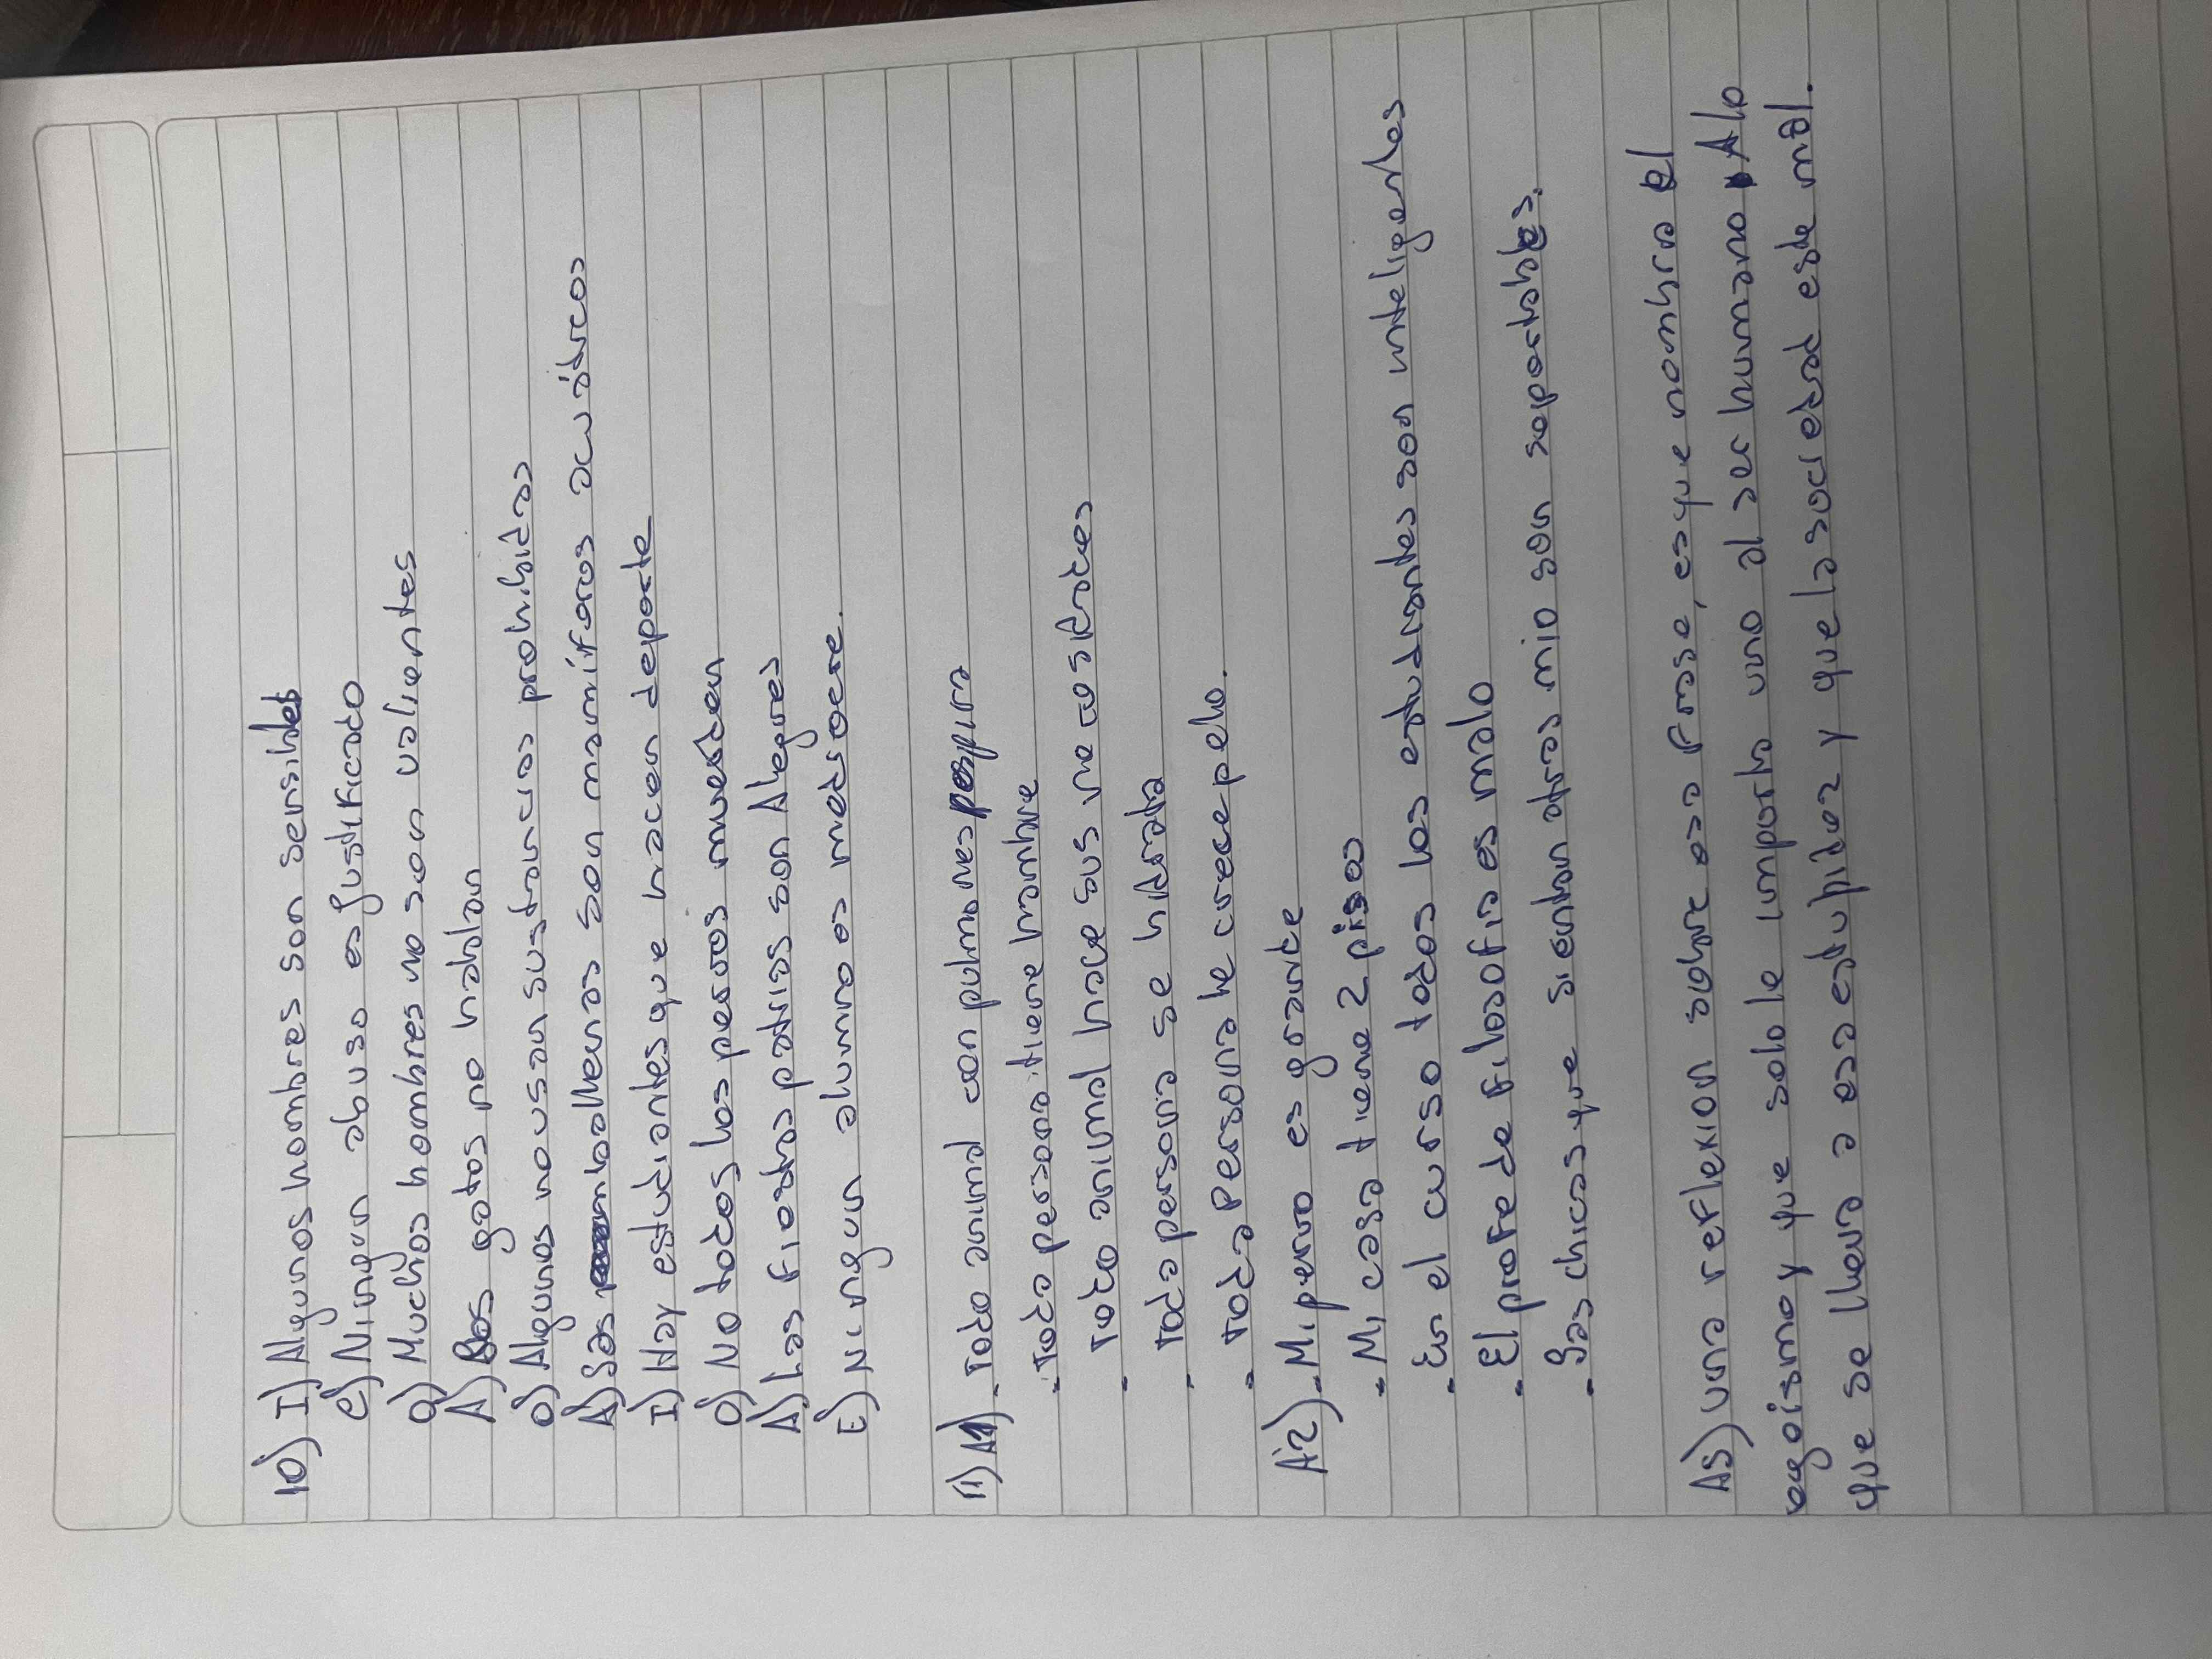 10) I) Algunos hombres son sensibles
e) Ningun abuso es justificado
O) Muchos hombres no son valientes
A) Los gatos no hablan
O) Algunos no usan sustancias prohibidas
A) Las ballenas son mamíferos acuáticos
I) Hay estudiantes que hacen deporte
O) No todos los perros muerden
A) Las fiestas patrias son Alegres
E) Ningun alumno es mediocre.
11) A1) - Todo animal con pulmones respira
- Toda persona tiene hambre
- Todo animal hace sus necesidades
- Toda persona se hidrata
- Toda persona le crece pelo.
A2) - Mi perro es grande
- Mi casa tiene 2 pisos
- En el curso todos los estudiantes son inteligentes
- El profe de filosofia es malo
- Las chicas que sientan atras mio son soportables.
A3) Una reflexion sobre esa frase, es que nombra el
egoismo y que solo le importa uno al ser humano A lo
que se lleva a esa estupidez y que la sociedad este mal.